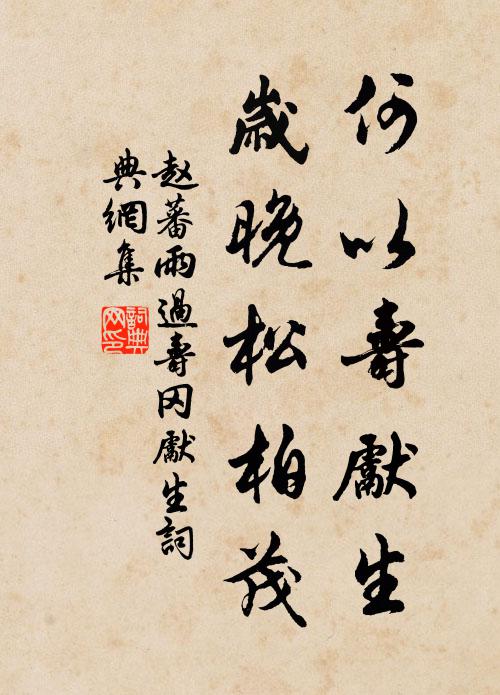 何以壽獻生
歲晚松柏茂
赵蕃雨過壽冈獻生詞
典網集
詞典
网印